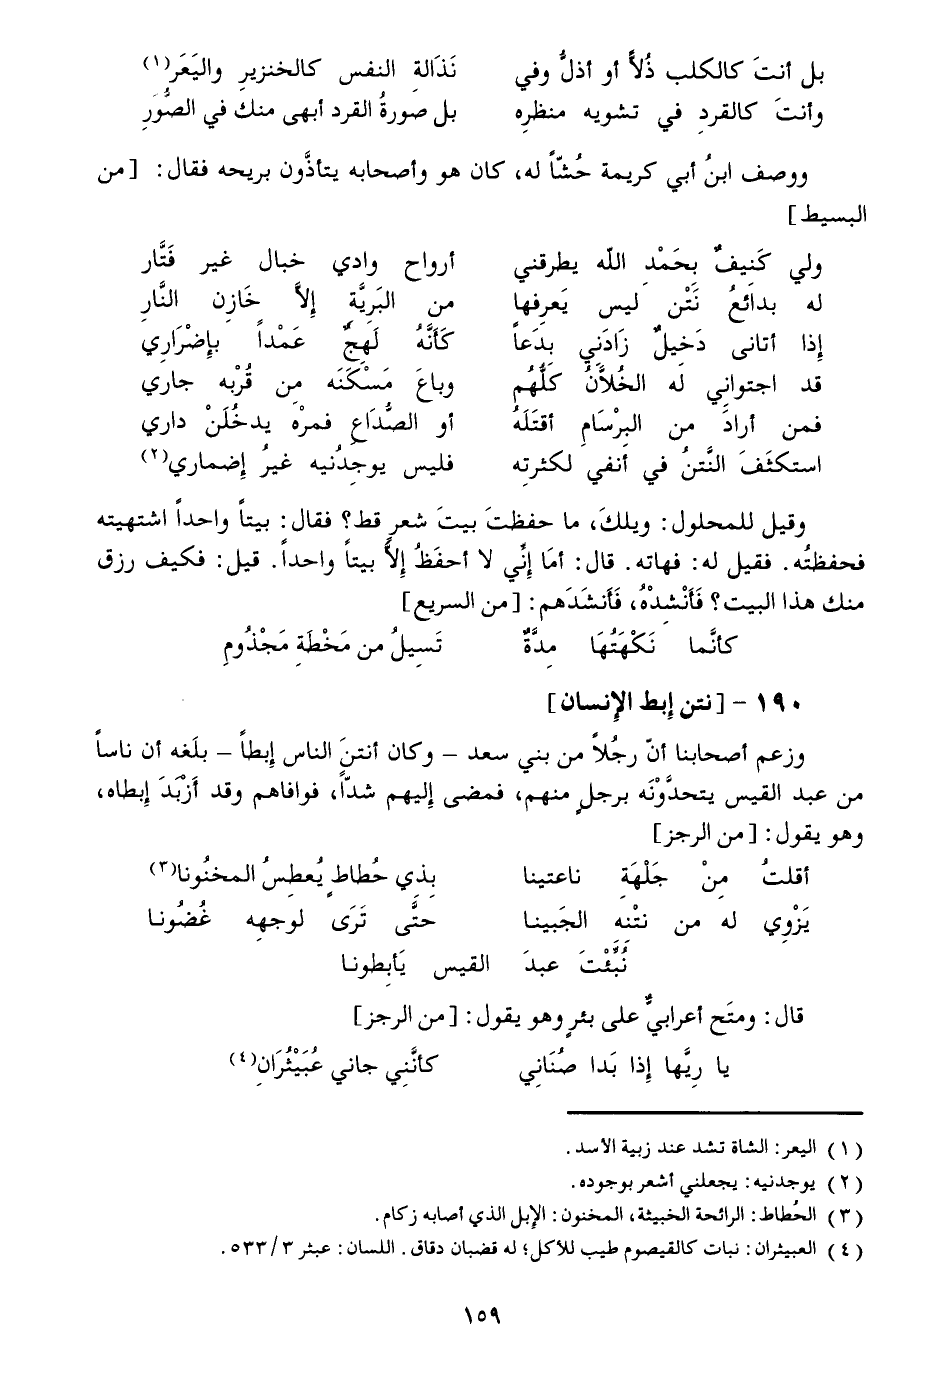 بل أنتَ كالكلب ذُلاًّ أو أذلُّ وفي نَذَالةِ النفس كالخنزيرِ واليَعَر(١)
وأنتَ كالقردِ في تشويه منظرِه بل صورةُ القرد أبهى منك في الصُّوَرِ
ووصف ابنُ أبي كريمة حُشّاً له، كان هو وأصحابه يتأذَّون بريحه فقال: [من
البسيط]
ولي كَنِيفٌ بِحَمْدِ اللّه يطرقني أرواح وادي خبال غير فَتَّار
له بدائعُ نَتْن ليس يَعرِفها من البَرِيَّةِ إلاَّ خَازِن النَّار
إذا أتانى دَخيلٌ زَادَنِي بدَعاً كَأنَّهُ لَهِجٌ عَمْداً بإضْرَارِي
قد اجتواني له الخُلاَّنُ كلُّهُم وباعَ مَسْكَنَه مِن قُرْبه جاري
فمن أرادَ من البِرْسَام أقتَلَهُ أو الصُّدَاعِ فمرْه يدخُلَنْ داري
استكثَفَ النَّتنُ في أنفي لكثرتِه فليس يوجدُنيه غيرُ إضماري(٢)
وقيل للمحلول: ويلكَ، ما حفظتَ بيتَ شعرٍ قط؟ فقال: بيتاً واحداً اشتهيته
فحفظتُه. فقيل له: فهاته. قال: أمَا إنِّي لا أحفَظُ إلاَّ بيتاً واحداً. قيل: فكيف رزق
منك هذا البيت؟ فَأنْشِدْهُ، فَأنشَدَهم: [من السريع]
كأنَّما نَكْهَتُهَا مِدَّةٌ تَسِيلُ من مَخْطَةِ مَجْذُومِ
١٩٠ - [نتن إبط الإنسان]
وزعم أصحابنا أنّ رجُلاً من بني سعد – وكان أنتنَ الناس إبطاً – بلَغه أن ناساً
من عبد القيس يتحدَّوْنَه برجلٍ منهم، فمضى إليهم شدّاً، فوافاهم وقد أزْبَدَ إبطاه،
وهو يقول: [من الرجز]
أقبلتُ مِنْ جَلْهَةِ ناعتينا بِذِي حُطاطٍ يُعطِسُ المخنُونا(٣)
يَزْوِي له من نتْنه الجَبينا حتَّى تَرَى لوجهِه غُضُونا
نُبِّئْتَ عبدَ القيس يَأبِطونا
قال: ومتَح أعرابيٌّ على بئرٍ وهو يقول: [من الرجز]
يا رِيَّها إذا بَدا صُنَاني كأنَّنِي جاني عُبَيْثُرَانِ(٤)
(١) اليعر: الشاة تشد عند زبية الأسد.
(٢) يوجدنيه: يجعلني أشعر بوجوده.
(٣) الحُطاط: الرائحة الخبيثة، المخنون: الإبل الذي أصابه زكام.
(٤) العبيثران: نبات كالقيصوم طيب للأكل؛ له قضبان دقاق. اللسان: عبثر ٥٣٣/٣.
١٥٩